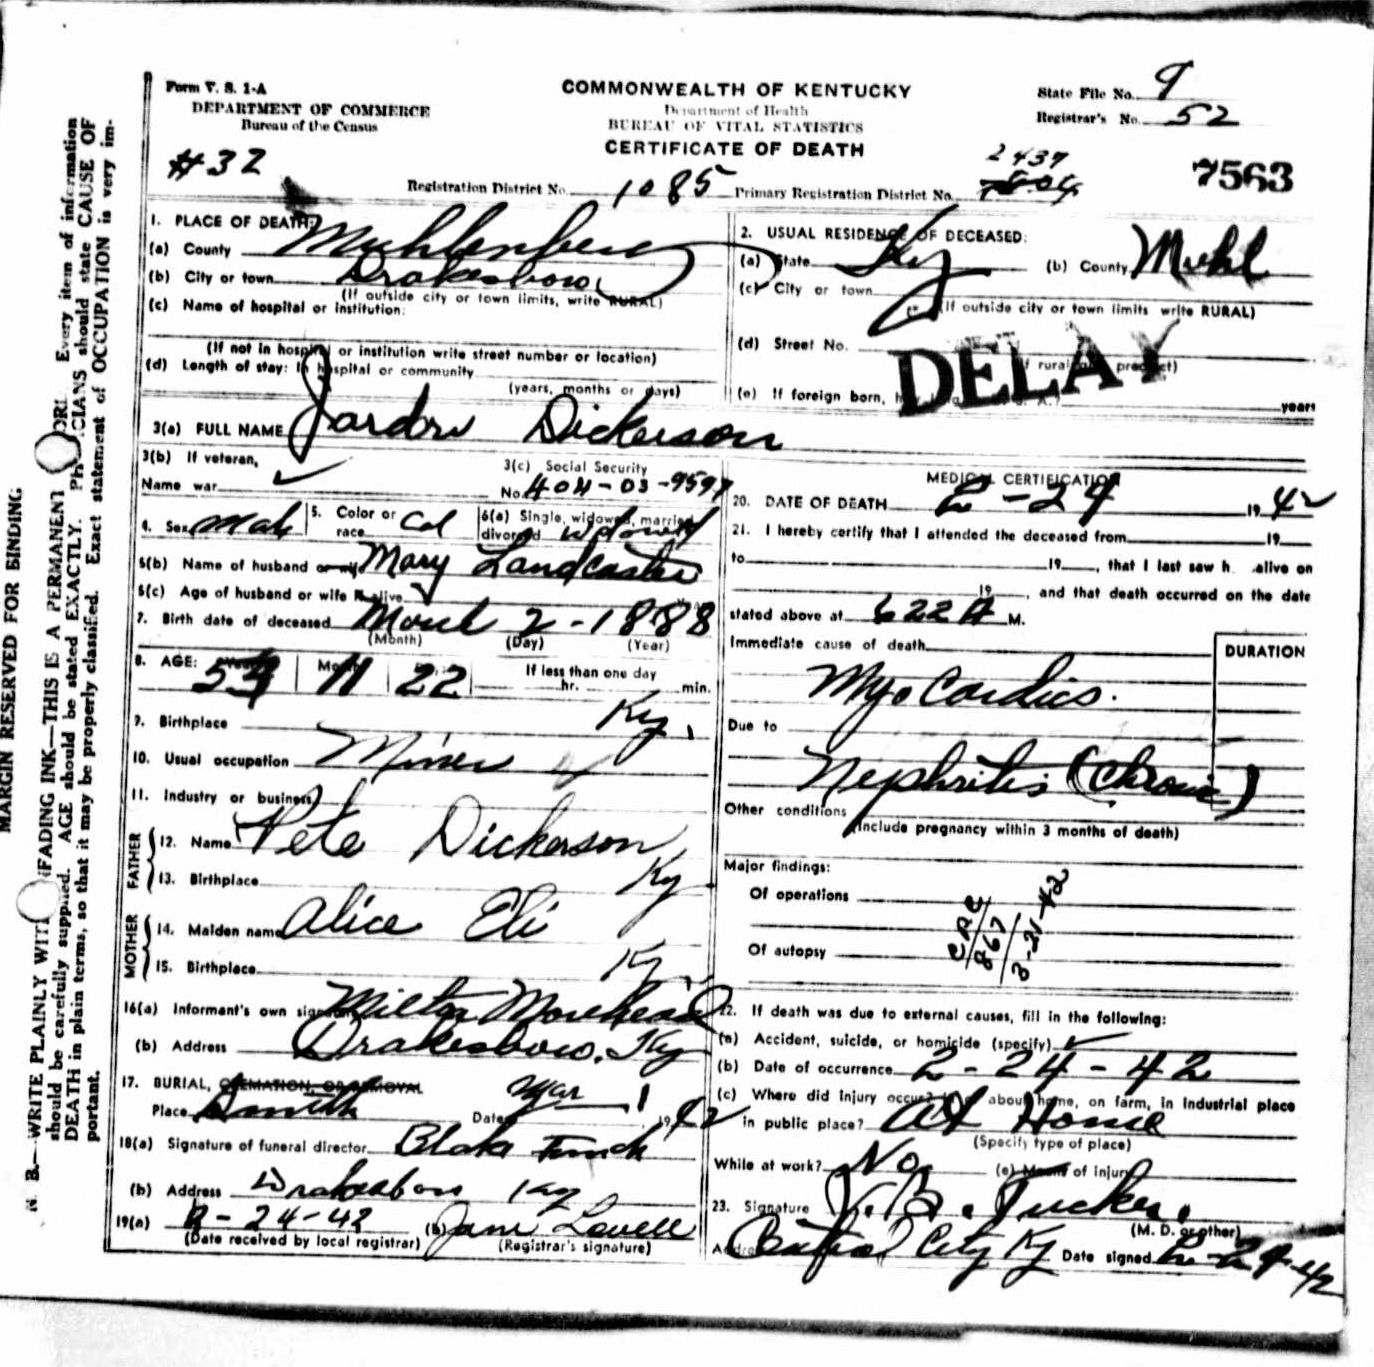 Form V. S. 1-A
DEPARTMENT OF COMMERCE
Bureau of the Census
COMMONWEALTH OF KENTUCKY
Department of Health
BUREAU OF VITAL STATISTICS
CERTIFICATE OF DEATH
State File No. 9
Registrar's No. 52
#32
Registration District No. 1085 Primary Registration District No. 2437
7563
1. PLACE OF DEATH:
(a) County Muhlenberg
(b) City or town Drakesboro
(If outside city or town limits, write RURAL)
(c) Name of hospital or institution:
(If not in hospital or institution write street number or location)
(d) Length of stay: In hospital or community
(years, months or days)
2. USUAL RESIDENCE OF DECEASED:
(a) State Ky (b) County Muhl
(c) City or town
(If outside city or town limits write RURAL)
(d) Street No.
DELAY
(e) If foreign born, years
3(a) FULL NAME Dickerson
3(b) If veteran,
Name war
3(c) Social Security
No. 404-03-9597
4. Sex Male 5. Color or race Col 6(a) Single, widowed, married, divorced widowed
6(b) Name of husband or wife Mary Landcaster
6(c) Age of husband or wife if alive
7. Birth date of deceased March 2-1888
(Month) (Day) (Year)
8. AGE: Years Months 11 22 If less than one day
hr. min.
9. Birthplace Ky.
10. Usual occupation Miner
11. Industry or business
FATHER
12. Name Pete Dickerson
13. Birthplace Ky
MOTHER
14. Maiden name Alice Eli
15. Birthplace Ky.
16(a) Informant's own signature Milton Morehead
(b) Address Drakesboro, Ky
17. BURIAL, CREMATION, OR REMOVAL
Place Date Mar 1 1942
18(a) Signature of funeral director
(b) Address Drakesboro Ky
19(a) 2-24-42 (b) Jane Lovell
(Date received by local registrar) (Registrar's signature)
MEDICAL CERTIFICATION
20. DATE OF DEATH 2-24 1942
21. I hereby certify that I attended the deceased from 19
to 19, that I last saw h alive on
19, and that death occurred on the date
stated above at 622 A M.
Immediate cause of death
DURATION
Myocardics.
Due to
Nephritis (Chronic)
Other conditions
(Include pregnancy within 3 months of death)
Major findings:
Of operations
Of autopsy
867
3-21-42
22. If death was due to external causes, fill in the following:
(a) Accident, suicide, or homicide (specify)
(b) Date of occurrence 2-24-42
(c) Where did injury occur? about home, on farm, in industrial place
in public place? At Home
(Specify type of place)
While at work? No (e) Means of injury
23. Signature V. B. Tucker.
(M. D. or other)
Address Central City Ky Date signed 2-24-42
MARGIN RESERVED FOR BINDING
N. B.—WRITE PLAINLY WITH UNFADING INK—THIS IS A PERMANENT RECORD. Every item of information
should be carefully supplied. AGE should be stated EXACTLY. PHYSICIANS should state CAUSE OF
DEATH in plain terms, so that it may be properly classified. Exact statement of OCCUPATION is very im-
portant.